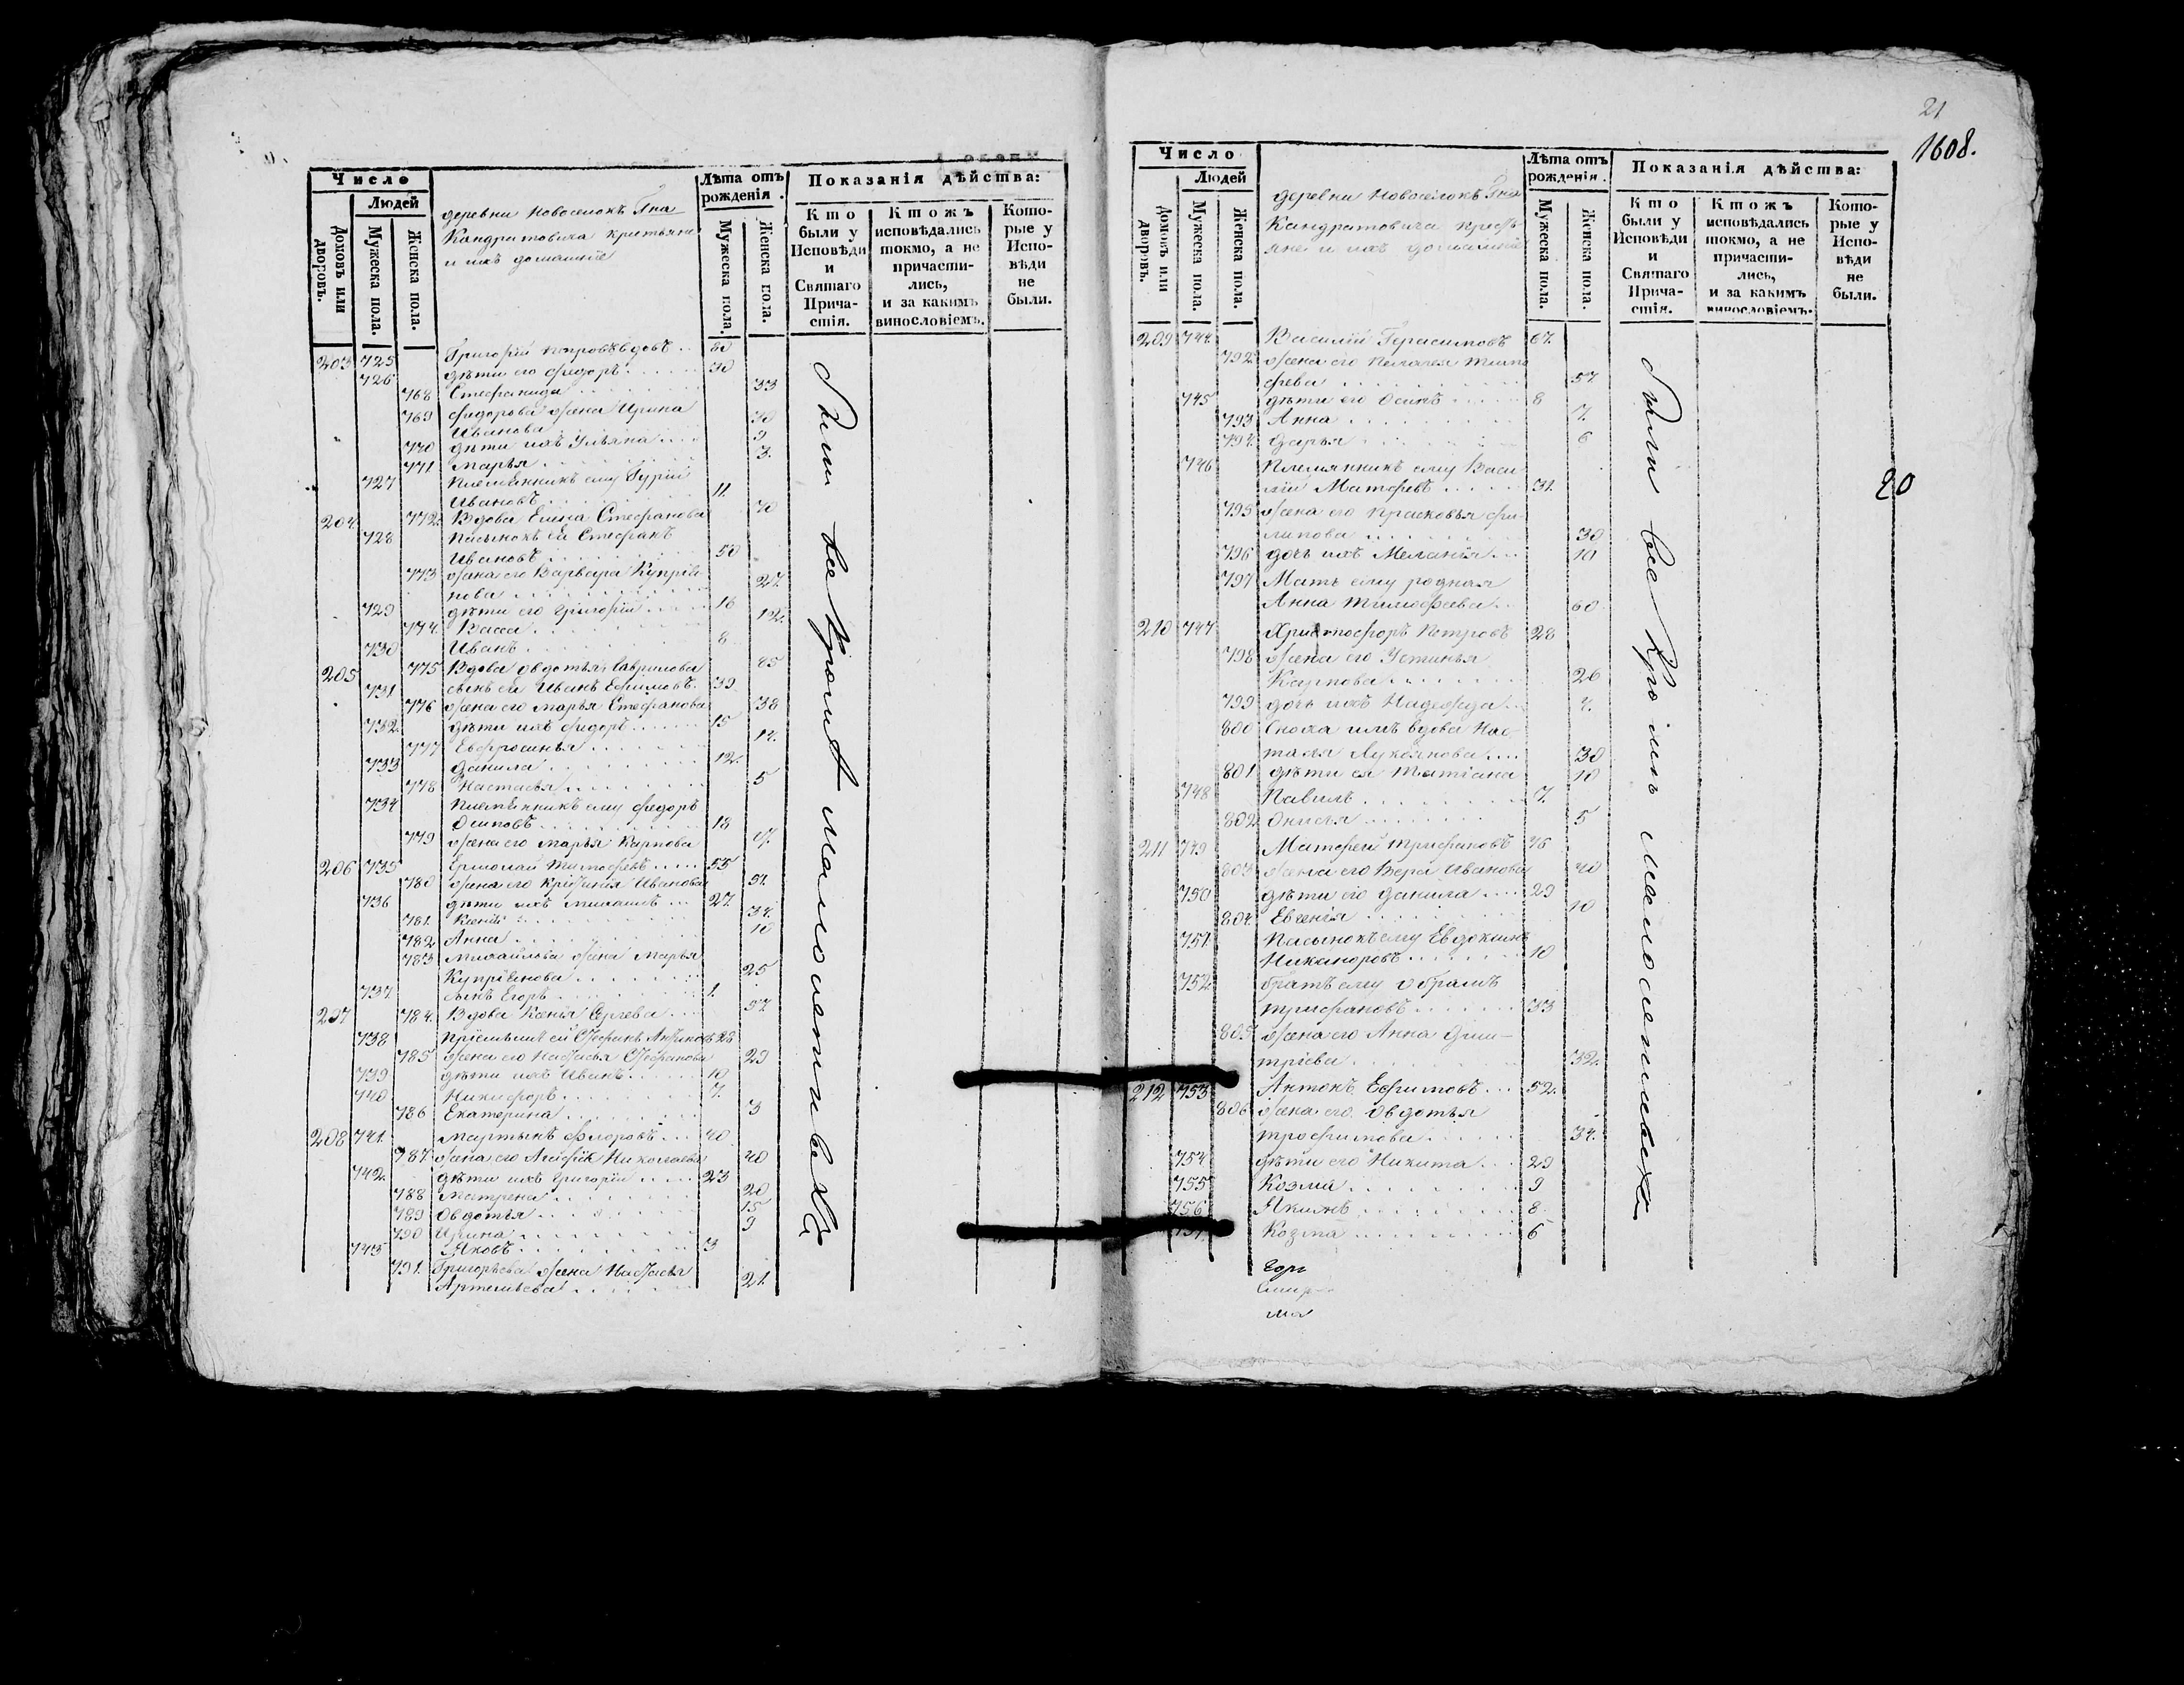 Число
Людей
Домовъ или дворовъ.
Мужеска пола.
Женска пола.
деревни Новоселокъ Гна
Кандратовича крестьяне
и ихъ домашніе
Лѣта отъ рожденія.
Мужеска пола.
Женска пола.
Показанія дѣйства:
Кто были у Исповѣди и Святаго Прича-стія.
Ктожъ исповѣдались токмо, а не причасти-лись, и за какимъ винословіемъ.
Кото-рые у Испо-вѣди не были.
203 725 Григорій вдовъ 80
726 дѣти его Федоръ 30
768 Стефанида 33
769 Федорова жена Ирина
Иванова 30
770 дѣти ихъ Ульяна 9
771 Марья 3.
727 Племянникъ ему Гурій
Ивановъ 11.
204. 772. Вдова Елена Стефанова 70
728 Пасынокъ ей Стефанъ
Ивановъ 50
773 жена его Варвара Купрія
нова 47.
729 дѣти его Григорій 16
774. Васса 12.
730 Иванъ 8
205 775 Вдова Овдотья Гаврилова 65
731 сынъ ея Иванъ Ефимовъ. 39
776 жена его Марья Стефанова 38
732. дѣти ихъ Федоръ 15
777 Евфросинья 14.
733 Данила 12.
778 Настасья 5
734 Племянникъ ему Федоръ
Осиповъ 18
779 жена его Марья Карпова
206 735 Ермолай Тимофѣевъ 55
780 жена его Иванова 51.
736 дѣти ихъ 27.
781. Ксенія 34.
782 Анна 10
783 Михайлова жена Марья
Купріянова 25
737. сынъ Егоръ 1.
207 784. Вдова Ксенія Сергеева 57
738 ей Стефанъ
785 жена его Настасья Стефанова 29
739 дѣти ихъ Иванъ 10
740 Никифоръ 7.
786 Екатерина 3
208 741. Мартынъ Флоровъ 40
787. жена его Николаева 40
742. дѣти ихъ Григорій 23
788 Матрена 20
789 Овдотья 15
790 Ирина 9
743 Яковъ 3
791. Григорьева жена Настасья
Артемьева 21.
Были все Кромѣ малолетнивхъ
21
1608.
Число
Людей
Домовъ или дворовъ.
Мужеска пола.
Женска пола.
деревни Новоселокъ Гна
Кандратовича кресть
яне и ихъ домашніе
Лѣта отъ рожденія.
Мужеска пола.
Женска пола.
Показанія дѣйства:
Кто были у Исповѣди и Святаго Прича-стія.
Ктожъ исповѣдались токмо, а не причасти-лись, и за какимъ винословіемъ.
Кото-рые у Испо-вѣди не были.
209 744. Василій Герасимовъ 67.
792 жена его Пелагея Тимо
феева 57.
745 дѣти его Осипъ 8
793 Анна 7.
794. Дарья 6
746 Племянникъ ему Васи
лій Матфеевъ 31.
795 жена его Прасковья Фи-
липова 30
796 дочь ихъ Меланія 10
797 Мать ему родная
Анна Тимофеева 60
210 747 Христофоръ Петровъ 28
798 жена его Устинья
Карпова 26
799 дочь ихъ Надежда 4.
800 Сноха имъ вдова Нас-
тасья Лукоянова 30
801 дѣти ея Татіана 10
748 Павелъ 7.
802 Онисья 5
211 749 Матфей Трифановъ 46
803 жена его Вера Иванова 40
750 дѣти его Данила 29
804. Евгенія 10
751. Пасынокъ ему Евдокимъ
Никаноровъ 10
752 братъ ему Абрамъ
Трифановъ 33
805 жена его Анна Дми-
тріева 32.
212 753 Антонъ Ефимовъ 52.
806 жена его Овдотья
Трофимова 34.
754 дѣти его Никита 29
755 Козма 9
756 Якимъ 8
757. Козма 6
Были все Кромѣ малолетнивхъ
20